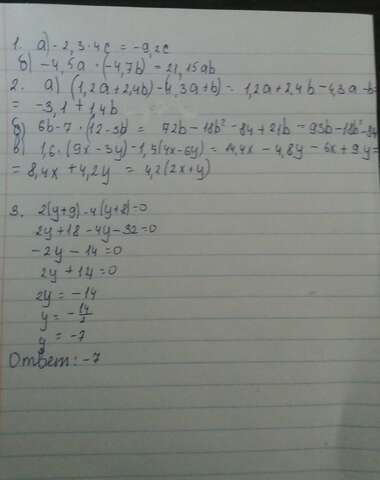 1. а) -2,3·4с = -9,2с
б) -4,5a·(-4,7b) = 21,15ab
2. а) (1,2a+2,4b)-(4,3a+b)= 1,2a+2,4b-4,3a-b=
= -3,1+1,4b
б) 6b-7·(12-3b)= 72b-18b²-84+21b=93b-18b²-84
в) 1,6·(9x-3y)-1,5(4x-6y)=14,4x-4,8y-6x+9y=
= 8,4x+4,2y = 4,2(2x+y)
3. 2(y+9)-4(y+8)=0
2y+18-4y-32=0
-2y-14=0
2y+14=0
2y = -14
y = -14/2
y = -7
Ответ: -7